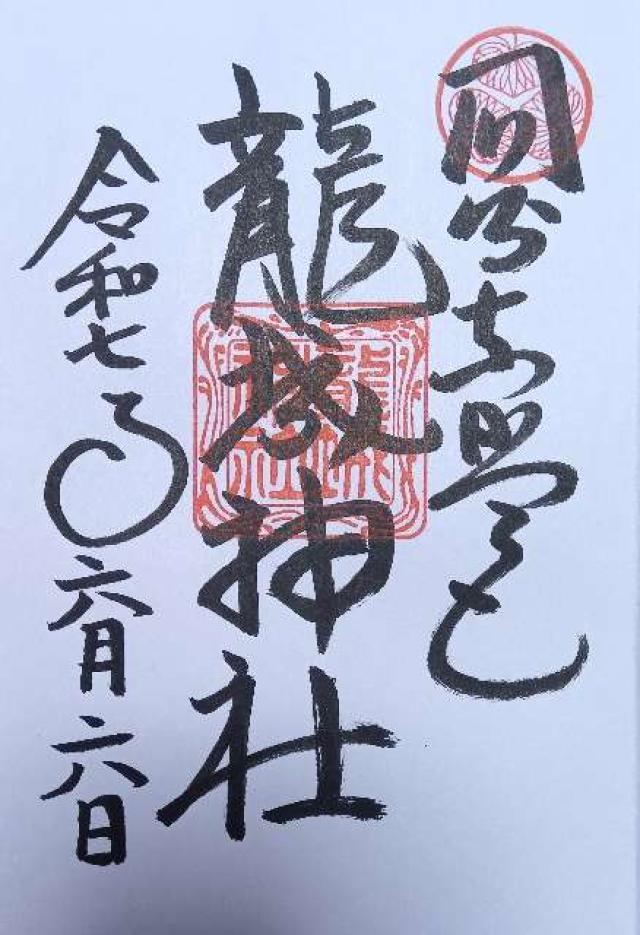 岡崎東照宮
龍城神社
令和七年六月六日